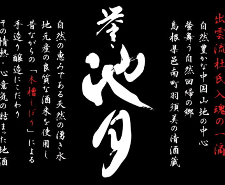 出雲流杜氏入魂の一滴
自然豊かな中国山地の中心
螢舞う自然回帰の郷
島根県邑南町羽須美の清酒蔵
誉池月
自然の恵みである天然の湧き水
地元産の良質な酒米を使用し
昔ながらの「木槽しぼり」による
手造り醸造にこだわり
その情熱・心意気の詰まった地酒